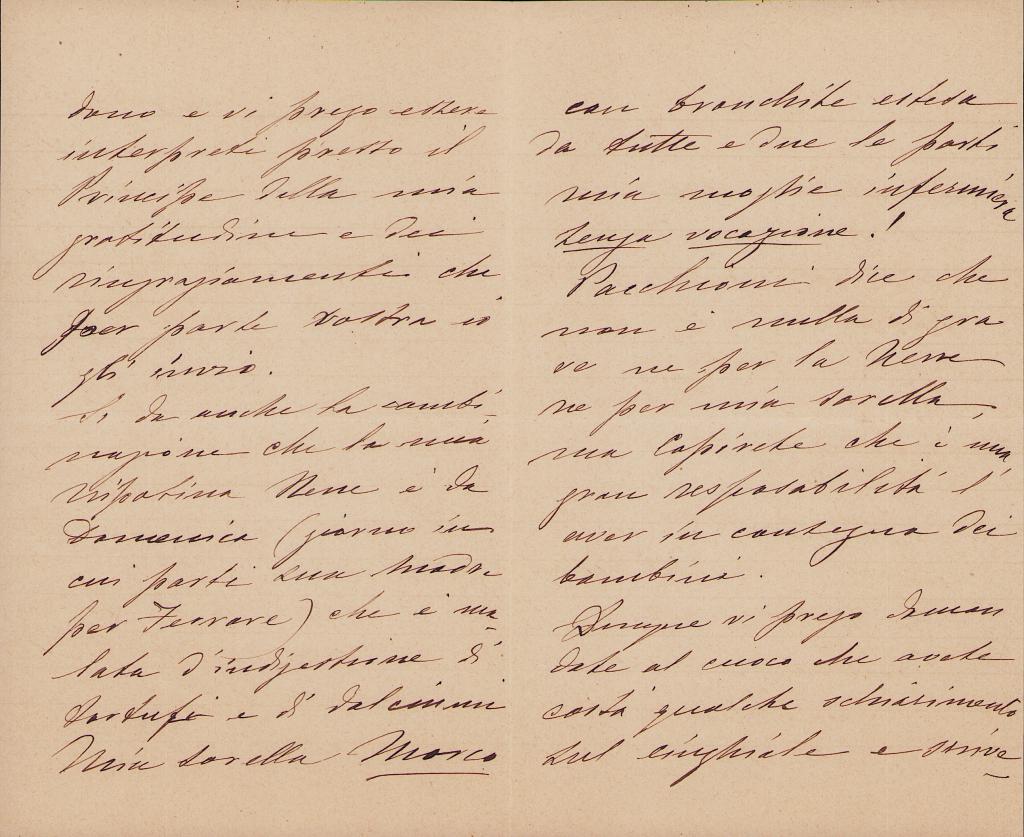 dono e vi prego essere
interpreti presso il
Principe della mia
gratitudine e dei
ringraziamenti che
per parte vostra io
gli invio.
Si da anche la combi-
nazione che la mia
nipotina Nene è da
Domenica (giorno in
cui partì sua madre
per Ferrare) che è ma-
lata d'indigestione di
tartufi e di dolciumi
Mia sorella Morco
con bronchite estesa
da tutte e due le parti
mia moglie infermiera
senza vocazione!
Pacchioni dice che
non è nulla di gra
ve ne per la Nene
ne per mia sorella,
ma Capirete che è una
gran resposabilità l'
aver in consegna dei
bambini.
Dunque vi prego doman
date al cuoco che avete
costà qualche schiarimento
sul cinghiale e scrive-